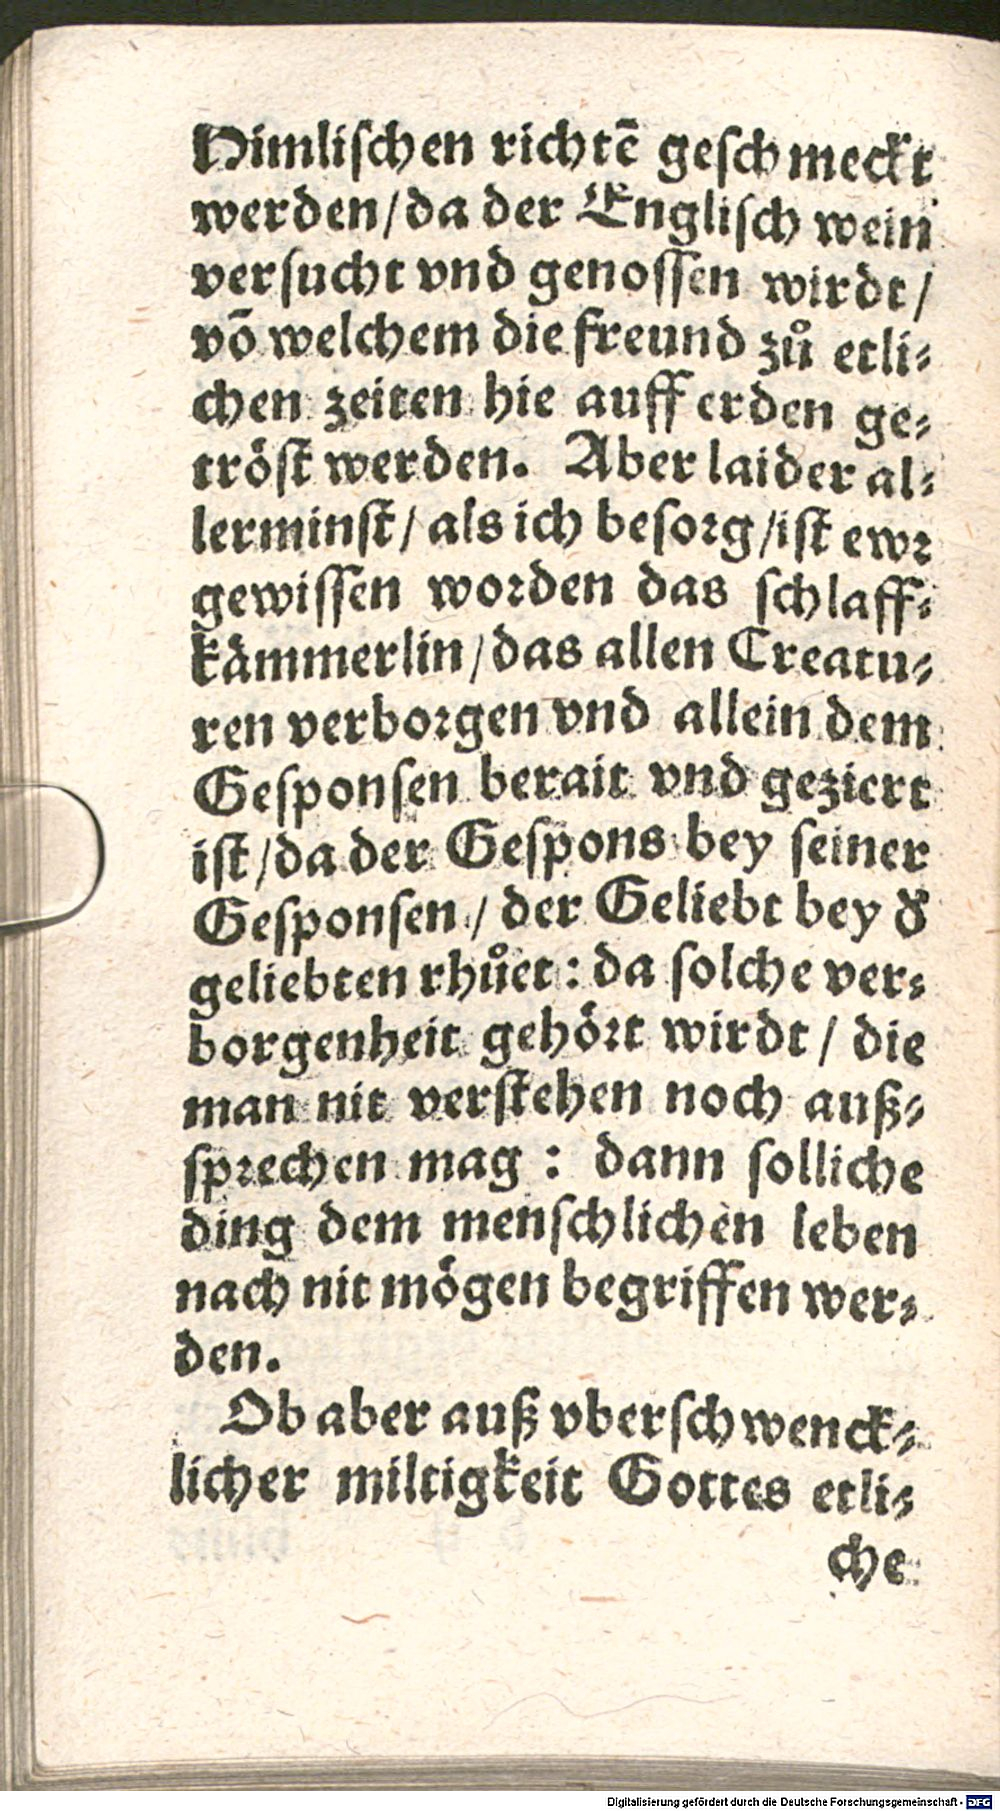 Himliſchen richtē geſchmeckt
werden/da der Engliſch wein
verſucht vnd genoſſen wirdt/
vō welchem die freund zů etli⸗
chen zeiten hie auff erden ge⸗
tröſt werden. Aber laider al⸗
lerminſt/ als ich beſorg/iſt ewꝛ
gewiſſen woꝛden das ſchlaff⸗
kämmerlin/das allen Creatu⸗
ren verboꝛgen vnd allein dem
Geſponſen berait vnd geziert
iſt/da der Geſpons bey ſeiner
Geſponſen/ der Geliebt bey d̕
geliebten rhůet: da ſolche ver⸗
borgenheit gehöꝛt wirdt/ die
man nit verſtehen noch auß⸗
ſpꝛechen mag : dann ſolliche
ding dem menſchlichen leben
nach nit mögen begriffen wer⸗
den.
Ob aber auß vberſchwenck⸗
licher miltigkeit Gottes etli⸗
che
Digitalisierung gefördert durch die Deutsche Forschungsgemeinschaft - DFG